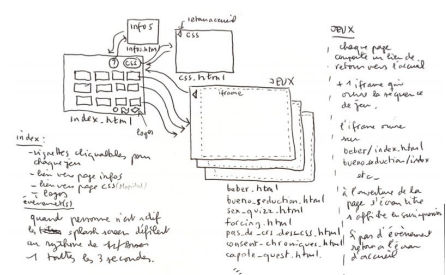 infos
infos.html
retour accueil
CSS
?
CSS
css.html
index.html
logos
JEUX
iframe
index :
- vignettes cliquables pour
chaque jeu
- lien vers page infos
- lien vers page CSS
- logos
évènement(s)
quand personne n'est actif
les splash screen défilent
au rythme de
1 toutes les 3 secondes.
beber.html
bueno_seduction.html
sex_quizz.html
forcing.html
pas_de_crs_dessCSS.html
consent-chroniques.html
capote_quest.html
JEUX
chaque page
comporte un lien de
retour vers l'accueil
+ 1 iframe qui
ouvre la séquence
de jeu.
l'iframe ouvre
sur
beber/index.html
bueno_seduction/index
etc_
à l'ouverture de la
page s'écran titre
s'affiche en surimpression
si pas d'évènement
retour à l'écran
d'accueil